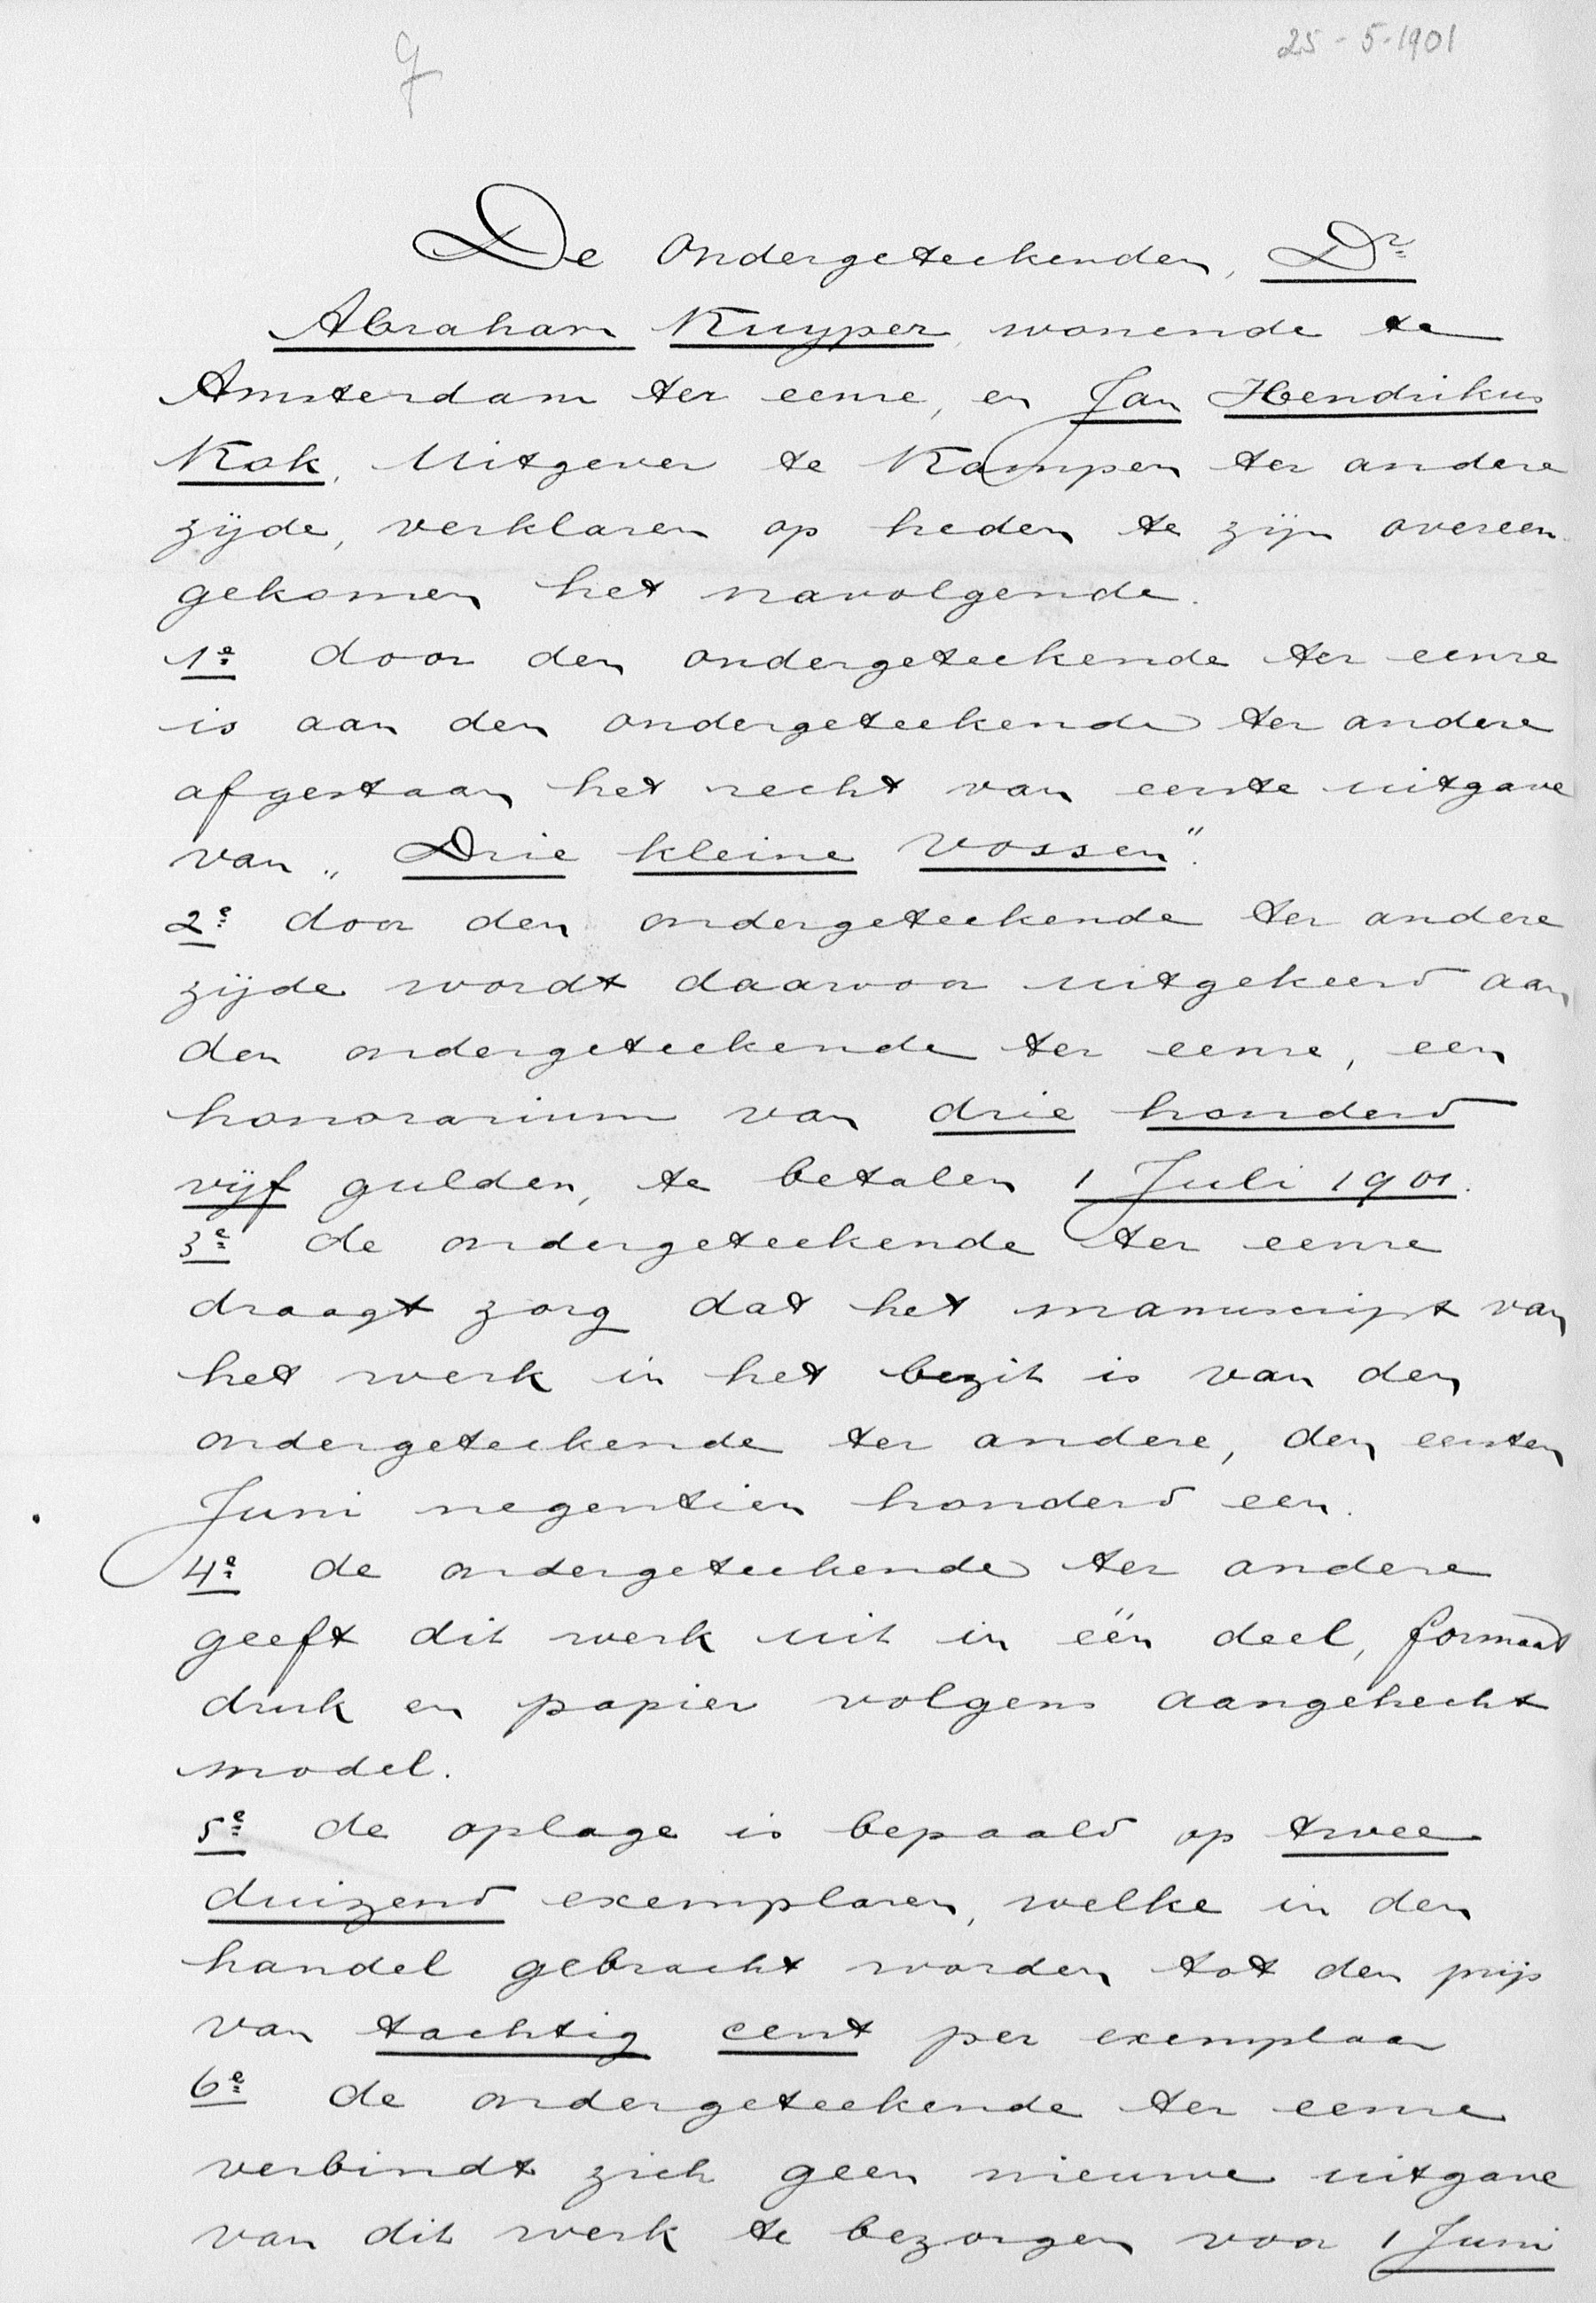 25-5-1901
De ondergeteekenden, Dr.
Abraham Kuyper, wonende te
Amsterdam ter eenre, en Jan Hendrikus
Kok, Uitgever te Kampen ter andere
zijde, verklaren op heden te zijn overeen
gekomen het navolgende.
1e door den ondergeteekende ter eenre
is aan den ondergeteekende ter andere
afgestaan het recht van eerste uitgave
van „Drie kleine vossen".
2e door den ondergeteekende ter andere
zijde wordt daarvoor uitgekeerd aan
den ondergeteekende ter eenre, een
honorarium van drie honderd
vijf gulden, te betalen 1 Juli 1901.
3e de ondergeteekende ter eenre
draagt zorg dat het manuscript van
het werk in het bezit is van den
ondergeteekende ter andere, den eersten
Juni negentien honderd een.
4e de ondergeteekende ter andere
geeft dit werk uit in één deel, formaat
druk en papier volgens aangehecht
model.
5e de oplage is bepaald op twee
duizend exemplaren, welke in den
handel gebracht worden tot den prijs
van tachtig cent per exemplaar
6e de ondergeteekende ter eenre
verbindt zich geen nieuwe uitgave
van dit werk te bezorgen voor 1 Juni